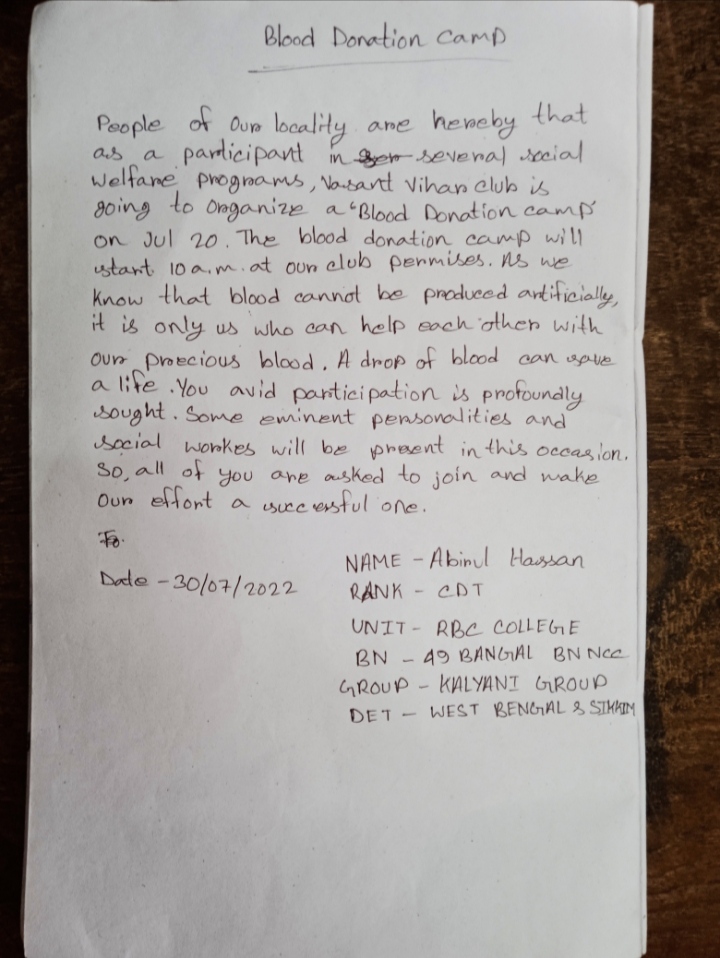 Blood Donation Camp
People of our locality are hereby that
as a participant in several social
welfare programs, Vasant Vihar club is
going to organize a "Blood Donation camp"
on Jul 20. The blood donation camp will
start 10 a.m. at our club permises. As we
know that blood cannot be produced artificially,
it is only us who can help each other with
our precious blood. A drop of blood can save
a life. You avid participation is profoundly
sought. Some eminent personalities and
social workes will be present in this occasion.
So, all of you are asked to join and make
our effort a successful one.
To.
Date - 30/07/2022
NAME - Abinul Hassan
RANK - CDT
UNIT - RBC COLLEGE
BN - 49 BANGAL BN NCC
GROUP - KALYANI GROUP
DET - WEST BENGAL & SIKKIM